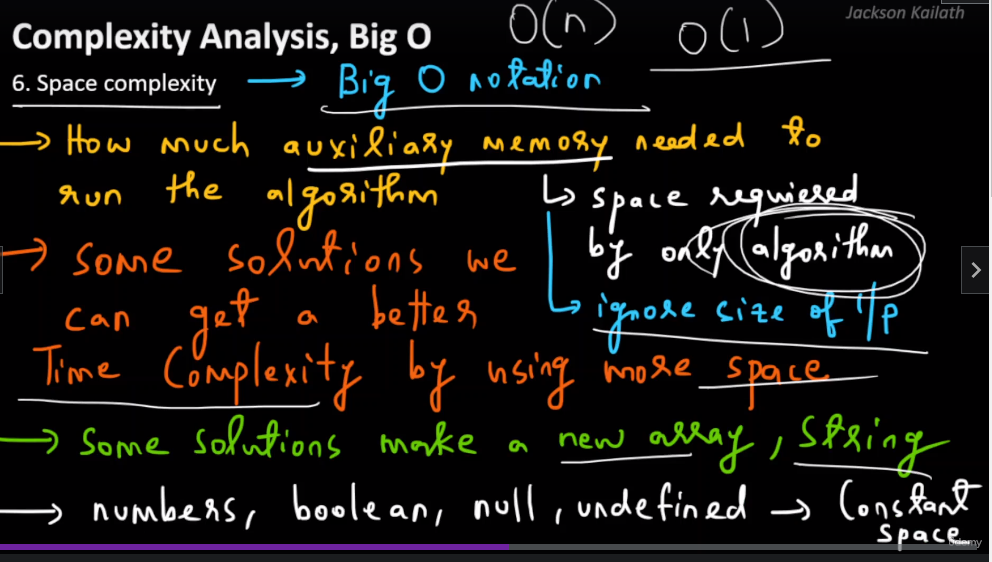 Jackson Kailath
Complexity Analysis, Big O O(n) O(1)
6. Space complexity → Big O notation
→ How much auxiliary memory needed to
run the algorithm
↳ space requiered
by only algorithm
↳ ignore size of i/p
→ Some solutions we
can get a better
Time Complexity by using more space
→ Some solutions make a new array, string
→ numbers, boolean, null, undefined → Constant
space
udemy